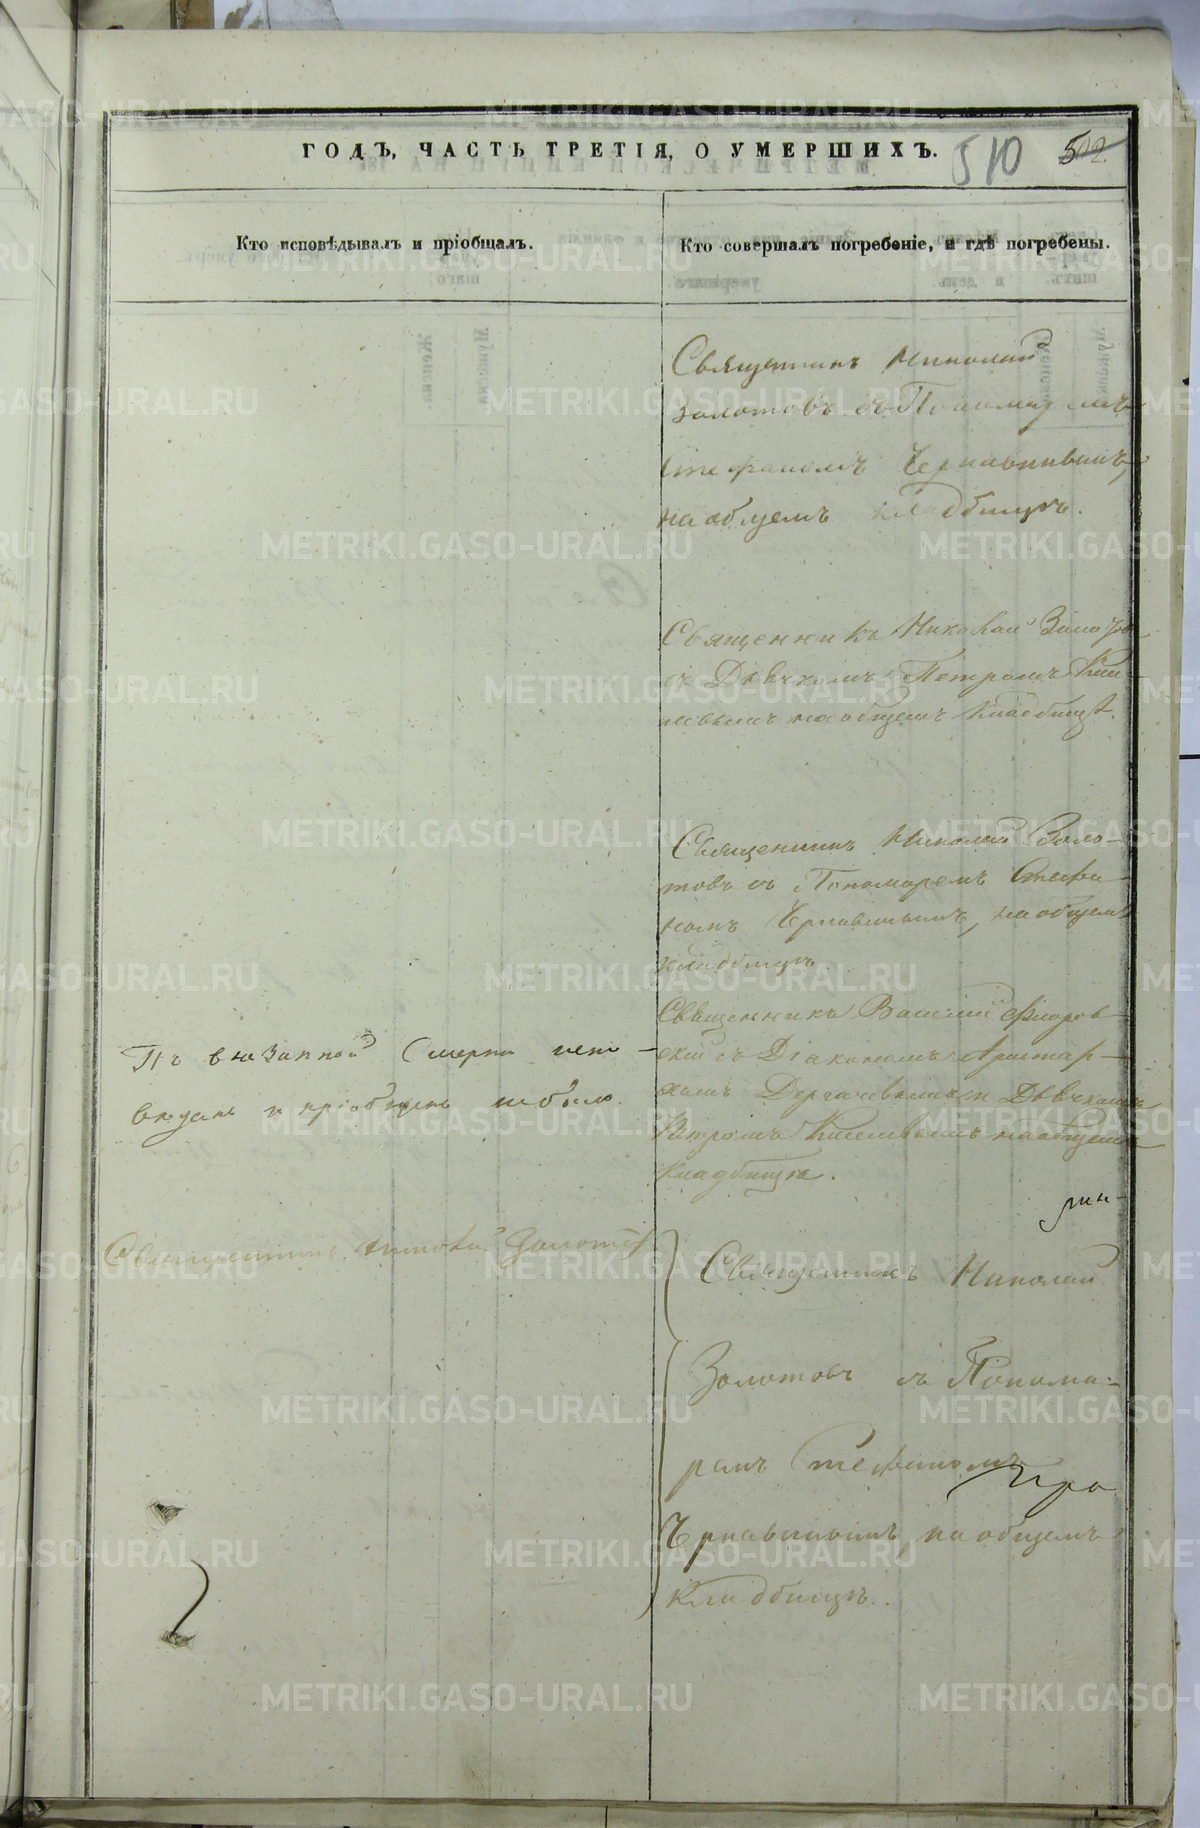 ГОДЪ, ЧАСТЬ ТРЕТІЯ, О УМЕРШИХЪ.
510 502
Кто исповѣдывалъ и пріобщалъ.
Кто совершалъ погребеніе, и гдѣ погребены.
Священникъ Николай
Золотовъ съ Пономаремъ
Стефаномъ Чернавинымъ,
на общемъ кладбищѣ.
Священникъ Николай Золотовъ
съ Дьячкомъ Петромъ
на общемъ кладбищѣ.
Священникъ Николай Золо-
товъ съ Пономаремъ Стефа-
номъ Чернавинымъ, на общемъ
кладбищѣ.
По внезапной смерти испо-
вѣданъ и пріобщенъ не былъ.
Священникъ Василій Флоров-
скій съ Діакономъ Аристар-
хомъ Дергачевымъ и Дьячкомъ
Петромъ на общемъ
кладбищѣ.
Священникъ Николай Золотовъ
Священникъ Николай
Золотовъ съ Понома-
ремъ Стефаномъ
Чернавинымъ, на общемъ
кладбищѣ.
METRIKI.GASO-URAL.RU